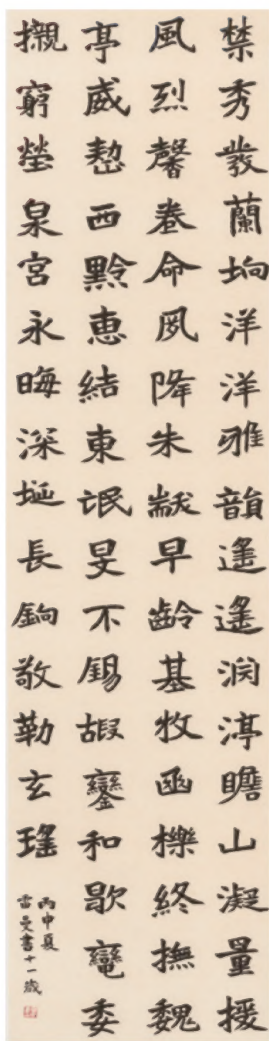 禁秀發蘭坰洋洋雅韻遙遙淵渟瞻山凝量援
風烈馨卷命夙降朱黻早齡基牧函櫟終撫魏
亭威愸西黔惠結東氓旻不錫嘏鑾和歇鸞委
櫬窮塋泉宮永晦深埏長鉤敬勒玄瑤
丙申夏
雷曼書十一歲